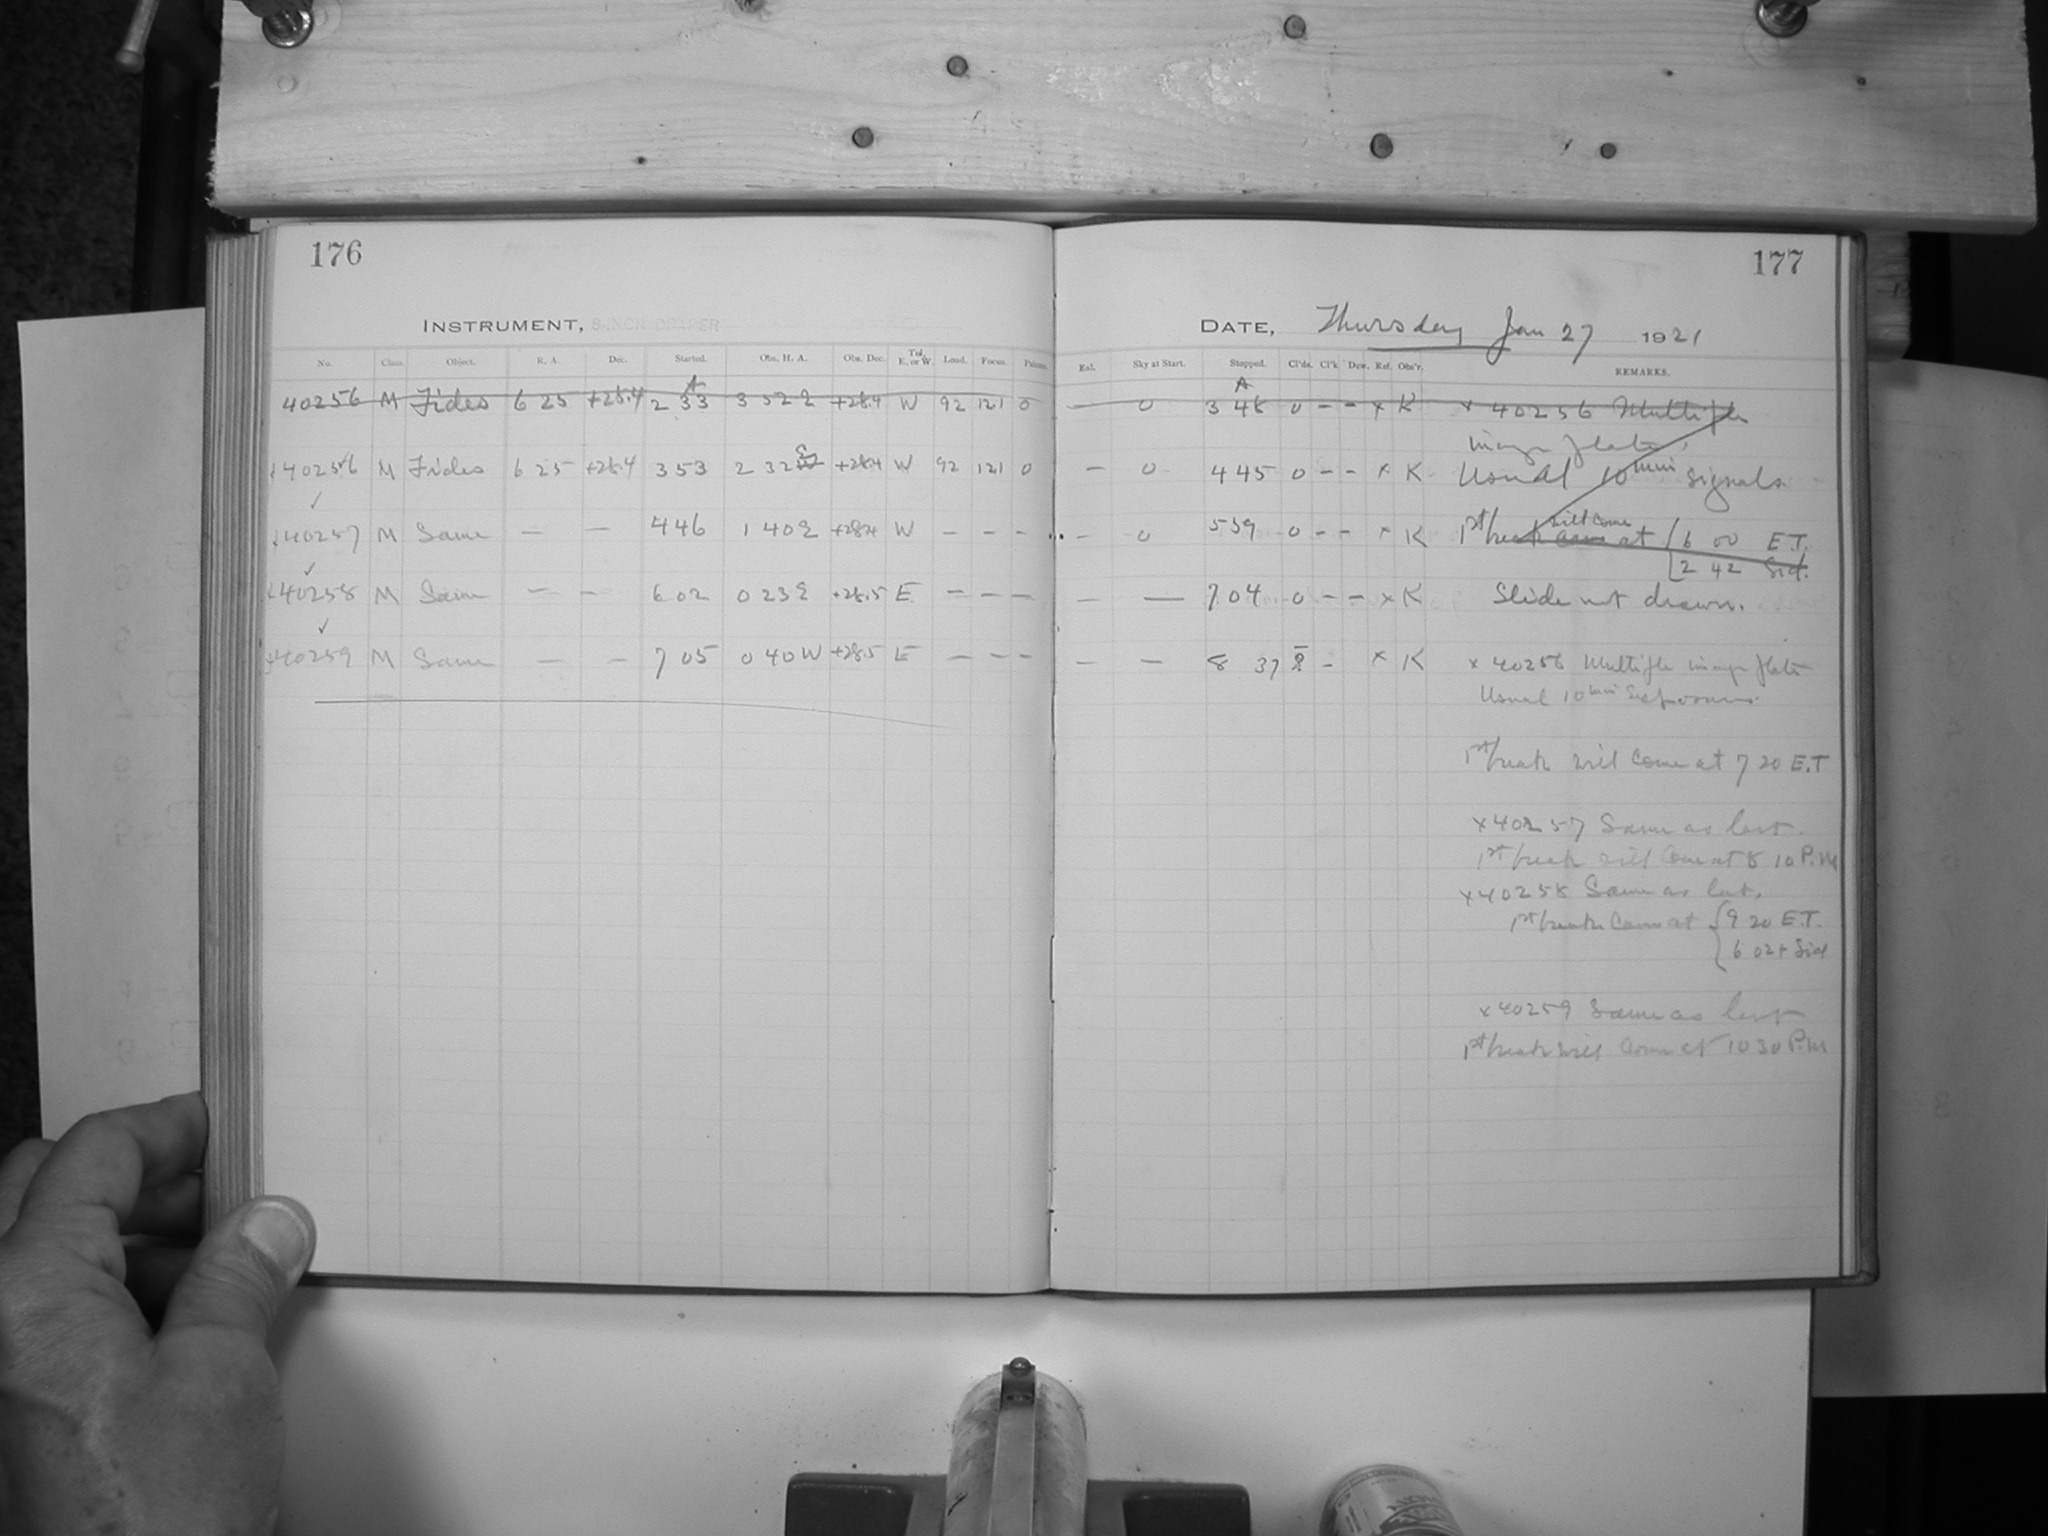 176
INSTRUMENT, 8 INCH DRAPER
No. Class. Object. R. A. Dec. Started. Obs. H. A. Obs. Dec. Tel. E. or W. Load. Focus.
40256 M Fides 6 25 +28.4 2 33 3 52 E +28.4 W 92 121 0
40256 M Fides 6 25 +28.4 3 53 2 32 E +28.4 W 92 121 0
40257 M Same — — 4 46 1 40 E +28.4 W — — —
40258 M Same — — 6 02 0 23 E +28.5 E — — —
40259 M Same — — 7 05 0 40 W +28.5 E — — —
177
DATE, Thursday Jan 27 1921
Sky at Start. Stopped. Cl'ds. Cl'k Dew. Ref. Obs'r. REMARKS.
A
— 0 3 48 0 - - x K x 40256 Multiple
image plate,
— 0 4 45 0 - - x K Usual 10 min signals.
will come
- 0 5 39 0 - - x K 1st break came at 6 00 E.T.
2 42 Sid.
— — 7 04 0 - - x K Slide not drawn.
— — 8 37 - x K x 40256 Multiple image plate
Usual 10 min
1st break will come at 7 20 E.T
x 40257 Same as last.
1st break will come at 8 10 P.M
x 40258 Same as last.
1st break came at 9 20 E.T.
6 02+ Sid
x 40259 Same as last
1st break will come at 10 30 P.M